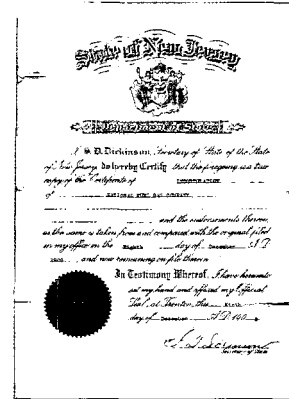 State of New Jersey
Department of State
I, S. D. Dickinson, Secretary of State of the State
of New Jersey, Do hereby Certify that the foregoing is a true
copy of the Certificate of
of NATIONAL FIRE
and the endorsements thereon,
as the same is taken from and compared with the original filed
in my office on the Eighth day of December A.D.
and now remaining on file therein.
In Testimony Whereof, I have hereunto
set my hand and affixed my Official
Seal, at Trenton, this
day of December A.D. 190
Secretary of State